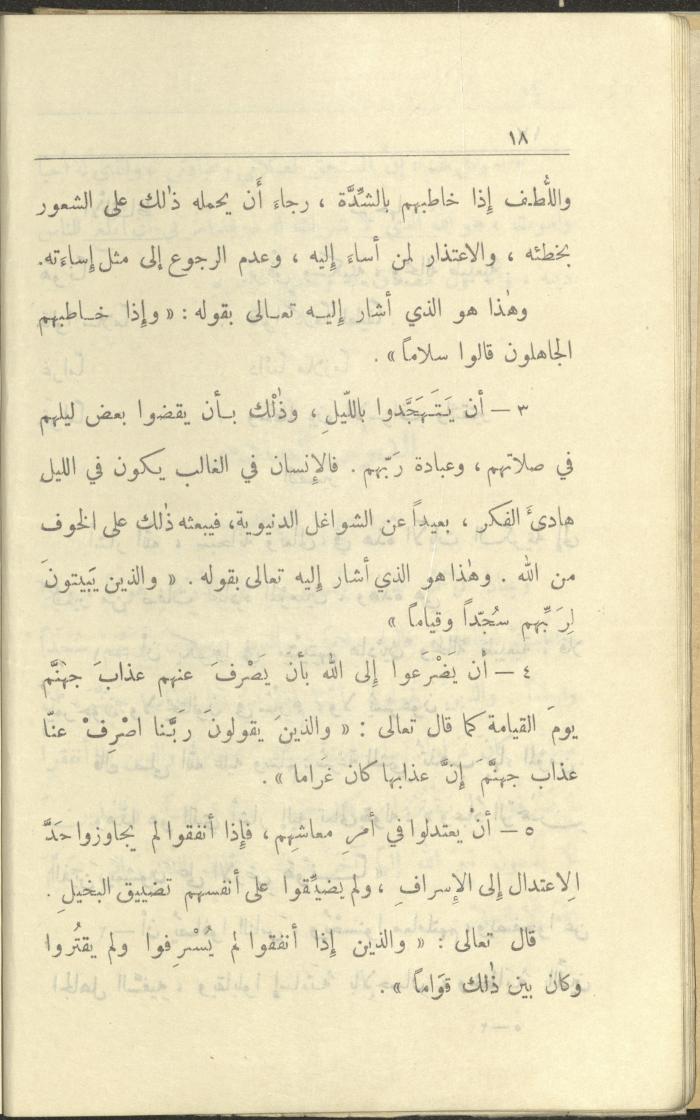 ١٨
واللُّطف إِذا خاطبهم بالشِّدَّة ، رجاءَ أَن يحمله ذٰلك على الشعور
بخطئه ، والاعتذار لمن أساءَ إِليه ، وعدم الرجوع إلى مثل إِساءَته.
وهٰذا هو الذي أشار إِليه تعالى بقوله : « وإِذا خاطبهم
الجاهلون قالوا سلاماً » .
٣ – أن يَتَهَجَّدوا باللّيلِ ، وذٰلْك بأن يقضوا بعض ليلهم
في صلاتهم ، وعبادة رَبّهم . فالإِنسان في الغالب يكون في الليل
هادئَ الفكر ، بعيداً عن الشواغل الدنيوية، فيبعثه ذٰلك على الخوف
من الله . وهٰذا هو الذي أشار إليه تعالى بقوله . « والذين يَبيتونَ
لِرَبِّهم سُجّداً وقياماً »
٤ – أن يَضْرَعوا إِلى الله بأن يَصْرفَ عنهم عذابَ جهنَّم
يومَ القيامة كما قال تعالى : « والذينَ يقولونَ رَبَّنا اصْرِفْ عنّا
عذاب جهنَّمَ إِنَّ عذابها كان غَراما » .
٥ – أنْ يعتدلوا في أمرِ معاشِهم، فإِذا أنفقوا لم يجاوزوا حَدَّ
الاِعتدال إلى الإِسرافِ ، ولم يضيِّقوا على أنفسهم تضييق البخيلِ .
قال تعالى : « والذين إِذا أنفقوا لم يُسْرِفوا ولم يقتُروا
وكان بين ذٰلك قَوَاماً » .